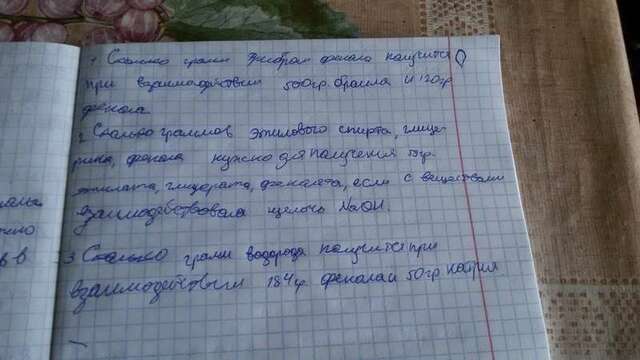 1 Сколько грамм трибром фенола получится
при взаимодействии 500гр. брома и 120гр
фенола.
2 Сколько граммов этилового спирта, глице-
рина, фенола нужно для получения гр.
этилата, глицерата, фенолята, если с веществами
взаимодействовала щелочь NaOH.
3 Сколько грамм водорода получится при
взаимодействии 184гр. фенола и 50гр натрия